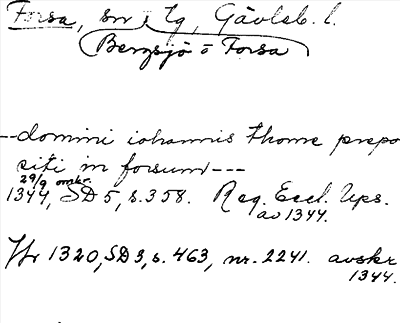 Forsa, sn i Lg, Gävleb. l.
Bergsjö o Forsa
--domini iohannis thome prepo
siti in forsum---
29/9 omkr.
1344, SD 5, s. 358. Reg. Eccl. Ups.
av 1344.
Hr 1320, SD 3, s. 463, nr. 2241. avskr
1344.